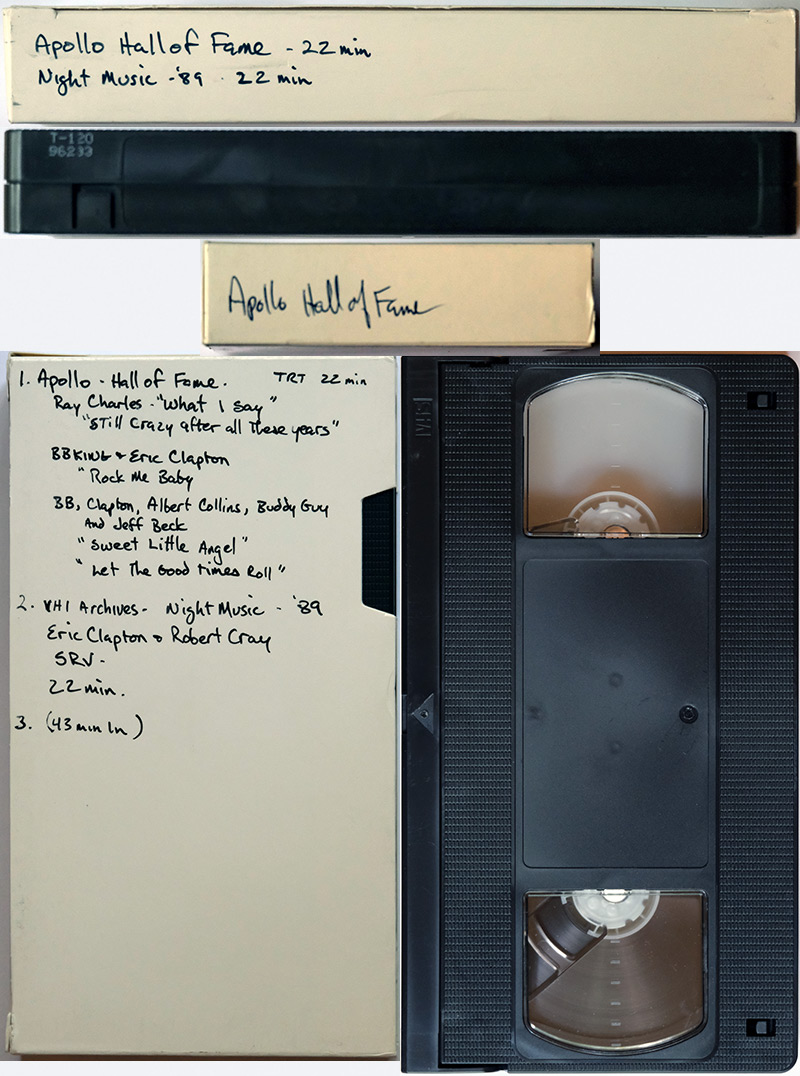 Apollo Hall of Fame - 22 min
Night Music - '89 . 22 min
T-120
96233
Apollo Hall of Fame
1. Apollo - Hall of Fame. TRT 22 min
Ray Charles - "What I Say"
"Still Crazy after all These years"
BB KING & Eric Clapton
"Rock Me Baby
BB, Clapton, Albert Collins, Buddy Guy
And Jeff Beck
"Sweet Little Angel"
"Let The Good Times Roll"
2. VH1 Archives - Night Music - '89
Eric Clapton & Robert Cray
SRV -
22 min.
3. (43 min In)